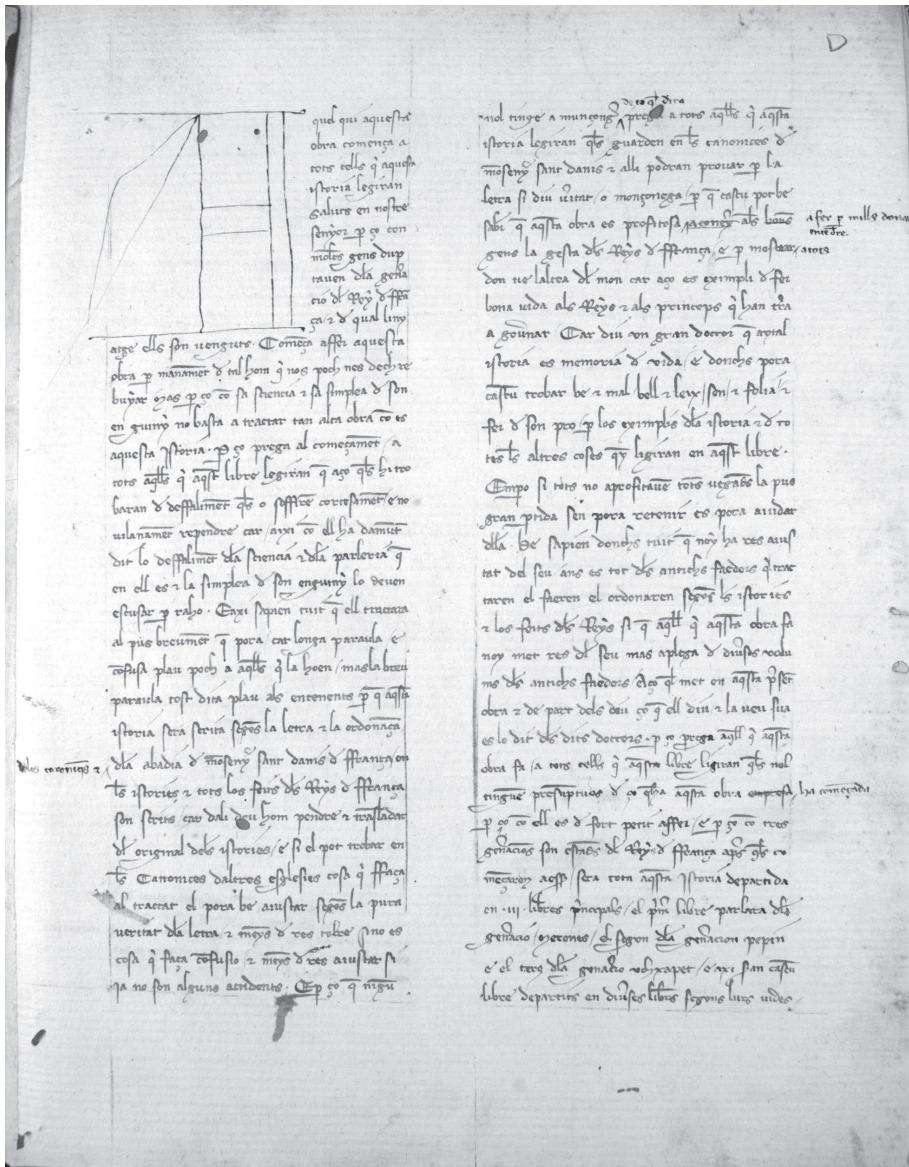 D
quel qui aquesta
obra comença a
tots cells q̄ aquesta
istoria legiran
Saluts en nostre
senyor ꝑ ço con
moltes gens dup
tauen dla gen̄a
cio dl Rey d ffrā
ça / ⁊ d qual liny
atge ells son uenguts · Comença affer aquesta
obra ꝑ manamēt d tal hom q̄ nos poch nes dech re
buyar mas ꝑ ço cō sa sciencia ⁊ sa simplea d son
enguiny no basta a tractar tan alta obra cō es
aquesta Istoria · ꝑ ço prega al començamēt / a
tots aq̄lls q̄ aq̄st libre legiran q̄ aço q̄ls hi tro
baran d deffalimēt q̄ls o soffrē cortesamēt / e no
uilanamēt rependre car / axi cō ell ha damūt
dit lo deffalimēt dla sciencia ⁊ dla parleria q̄
en ell es ⁊ la simplea d son enguiny lo deuen
escusar ꝑ raho · Eaxi sapien tuit q̄ ell tractara
al pus breumēt q̄ pora car longa paraula e
cōfusa plau poch a aq̄lls q̄ la hoen / mas la breu
paraula tost dita plau als entenents ꝑ q̄ aq̄sta
istoria sera scrita sego̅s la letra ⁊ la ordonāça
dla abadia d mosenỹ sant danis d ffrança / on
deles coronicq̄s ⁊
l̄s istories ⁊ tots los feits dls Reys d ffrança
son scrits / car dali deu hom pendre ⁊ trasladar
dl original dels istories / e si el pot trobar en
l̄s Canonices daltres esglesies cosa q̄ ffaça
al tractat el pora be aiustar sego̅s la pura
ueritat dla letra / ⁊ meỹs d res tolre sino es
cosa q̄ faça cōfusio ⁊ meỹs d res aiustar si
ia no son alguns accidents · E ꝑ ço q̄ nīgu
nol tinge a munçong̃ prega a tots aq̄lls q̄ aq̄sta
de ço q̄l dira
istoria legiran q̄ls guarden en l̄s canonices d
mosenỹ sant danis ⁊ alli podran prouar ꝑ la
letra si diu ūitat / o monçonega / ꝑ q̄ cascu pot be
sab̄r q̄ aq̄sta obra es profitosa als bons
a fer ꝑ mills donar
entēdre
gens la gesta dls Reys d ffrança / e ꝑ mostrar
a tots
don ue laltea dl mon car aço es eximpli d fer
bona uida als Reys ⁊ als princeps q̄ han tr̄a
a gou̅nar · Car diu vn gran doctor q̄ aytal
istoria es memoria d vida / e donchs pora
cascu trobar be ⁊ mal bell ⁊ leix / sen / ⁊ folia / ⁊
fer d son pro / ꝑ los eximplis dla istoria ⁊ d to
tes l̄s altres coses q̄y ligiran en aq̄st libre ·
Empo si tots no aprofitauē tots uegads la pus
gran ꝑtida sen pora retenir es pora aiudar
dlla · He sapien donchs tuit q̄ noy ha res aius
tat del seu ans es tot dls antichs faedors q̄ trac
taren el faeren el ordonaren sego̅s l̄s istories
⁊ los feits dls Reys si q̄ aq̄ll q̄ aq̄sta obra fa
noy met res dl seu mas aplega d diu̅ses volu
ms dls antichs faedors Aço q̄ met en aq̄sta p̄sēt
obra ⁊ de part dels deu ço q̄ ell diu / ⁊ la ueu sua
es lo dit dls dits doctors · ꝑ ço prega aq̄ll q̄ aq̄sta
obra fa / a tots cells q̄ aq̄sta libre ligiran q̄ls nol
tinguē presuptuos d ço q̄ha aq̄sta obra empresa
ha començada
ꝑ ço cō ell es d fort petit affer / e ꝑ ço cō tres
gen̄acions son estads dl Reys d ffrança ap̄s q̄ls co
mēçarē aesser / sera tota aq̄sta Istoria departida
en · iii · libres p̄ncipals / el p̄m libre parlara dla
gen̄acio / merones / el segon dla gen̄acion pepin
e el terç dla gen̄acio vhxapet / e axi s̄an cascū
libre departits en diu̅ses libres segons lurs uides ·